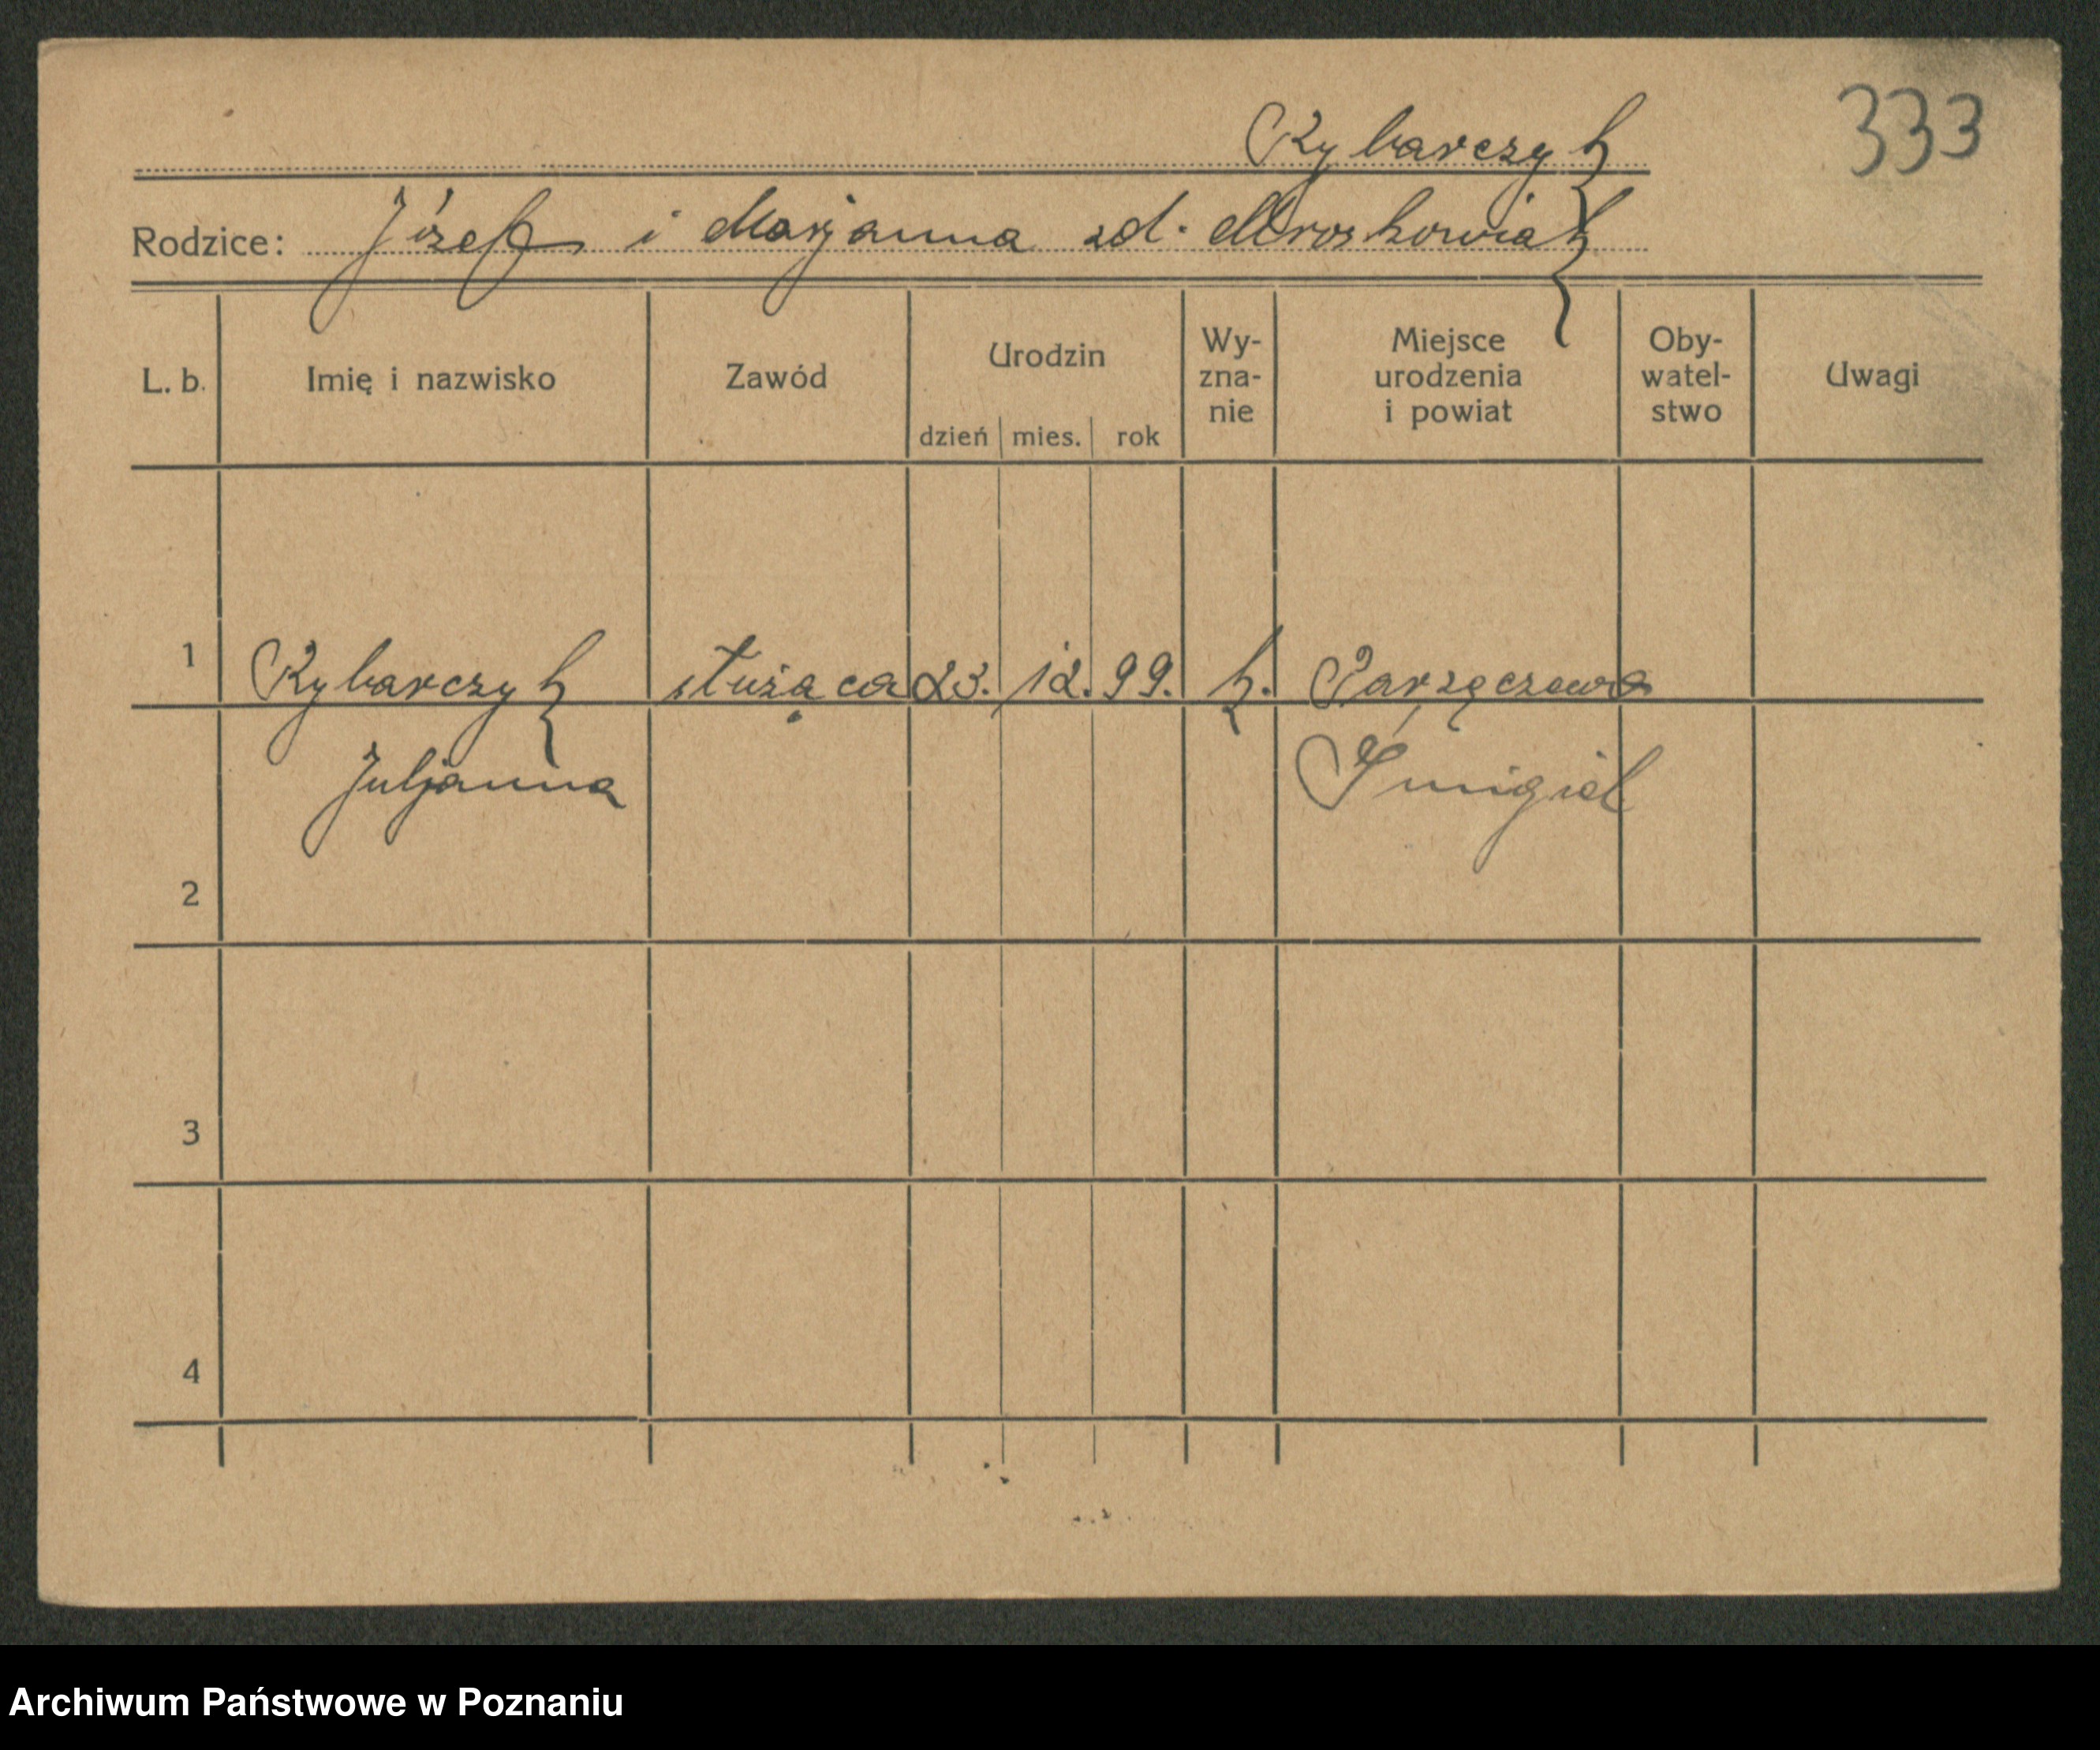 333
Rybarczyk
Rodzice: Józef i Marjanna zd. Mroskowiak
L. b. Imię i nazwisko Zawód Urodzin dzień mies. rok Wy-zna-nie Miejsce urodzenia i powiat Oby-watel-stwo Uwagi
1 Rybarczyk służąca 23. 12. 99. k. Parzęczewo
Juljanna Śmigiel
2
3
4
Archiwum Państwowe w Poznaniu